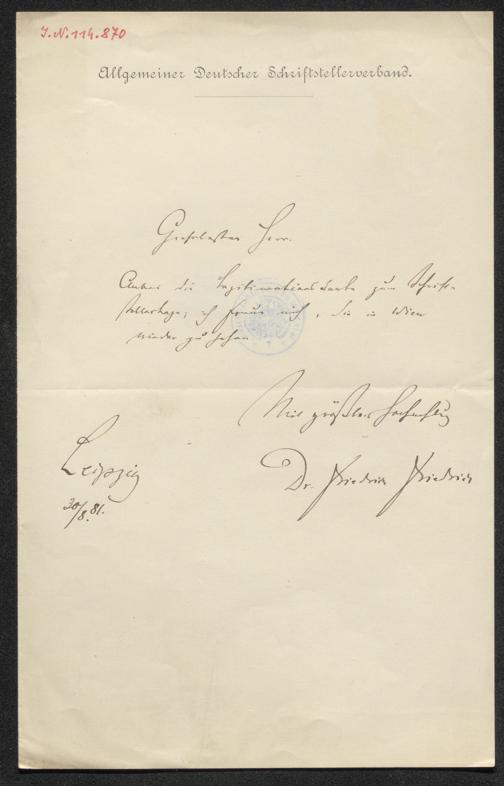 J.N. 114.870
Allgemeiner Deutscher Schriftstellerverband.
Geehrtester Herr.
Anbei die Legitimationskarte zum Schrift-
stellertage; ich freue mich, Sie in Wien
wieder zu sehen
Mit größter Hochachtung
Dr. Friedrich Friedrich
Leipzig
30/8. 81.